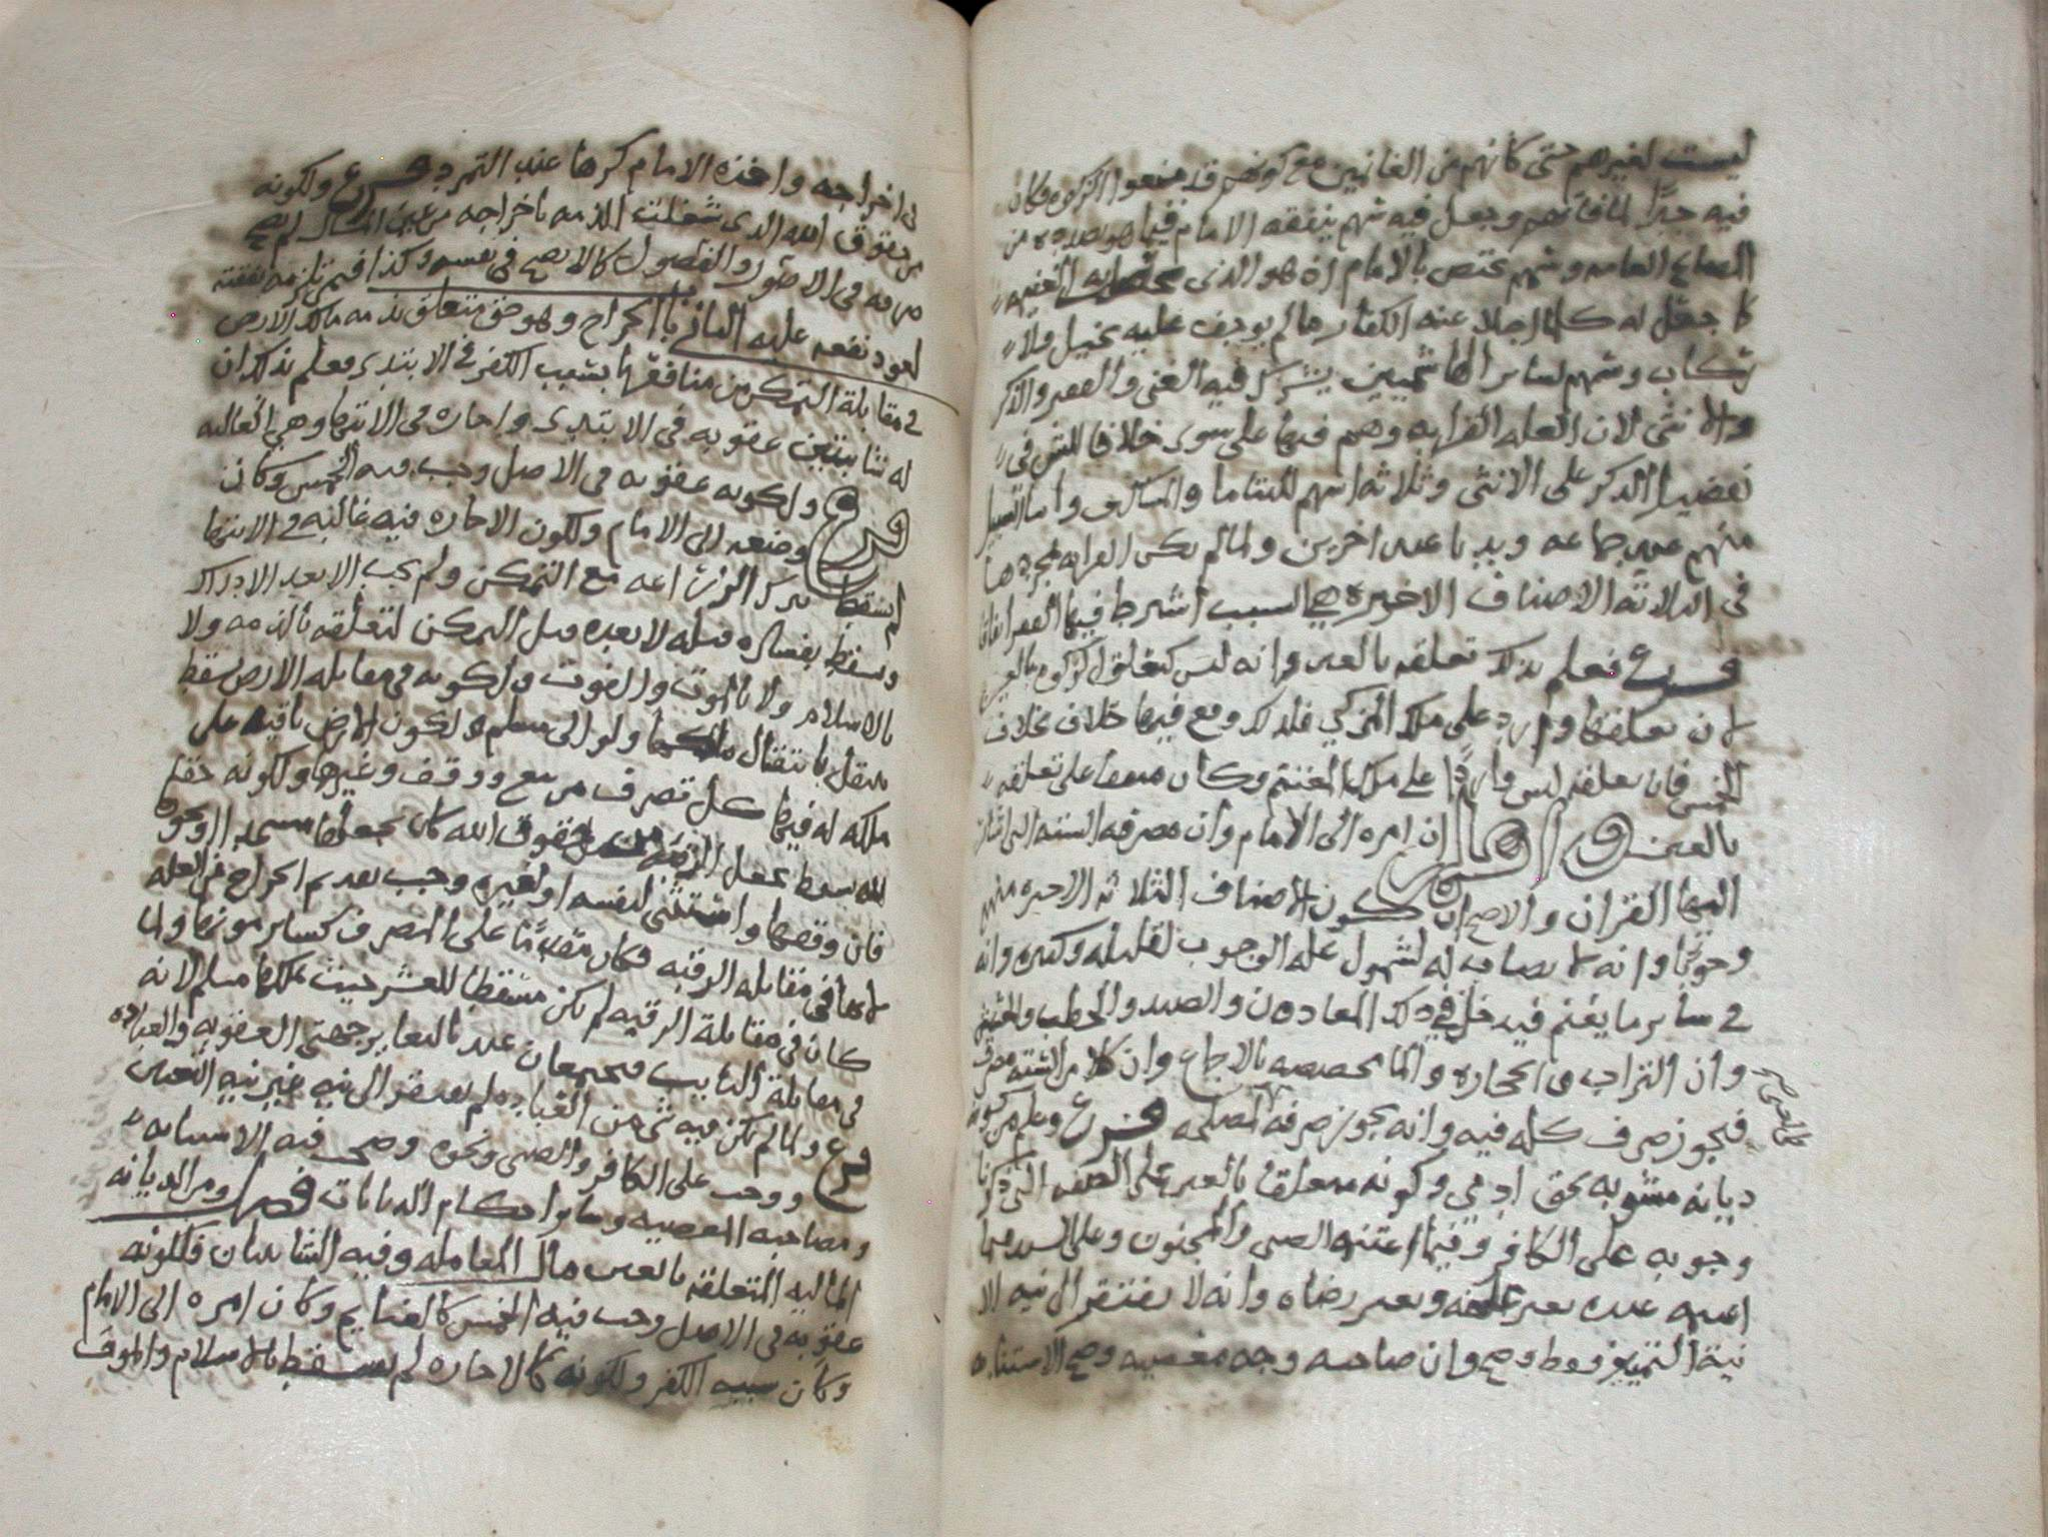 ليست لغيرهم حتى كانهم من الغانمين مع كونهم قد منعوا الزكوه فكان
فيه جبرًا لما فاتهم وجعل فيه سهم ينفقه الامام فيما هو بصدده من
المصالح العامه وسهم يختص بالامام اذ هو الذي
كما جعل له كلما اجلا عنه الكفار مما لم يوجف عليه بخيل ولا
ركاب وسهم لساير الهاشميين يشترك فيه الغني والفقير والذكر
والانثى لان العله القرابه وهم فيها على سوى خلافا للش في
تفضيل الذكر على الانثى وثلاثه اسهم لليتاما والمساكين وابنا السبيل
منهم عند جماعه وبدنا عند اخرين ولما لم يكن القرابه بمجردها
في الثلاثه الاصناف الاخيره هي السبب اشترط فيها الفقر اتفاقا
فرع فعلم بذلك تعلقه بالعين وانه ليس كتعلق الزكوه بالعين
لان تعلقها وارد على ملك المزكي فلذلك وقع فيها خلاف بخلاف
الخمس فان تعلقه ليس واردًا على ملك المغنم وكان متفقا على تعلقه
بالعين وان امره الى الامام وان مصرفه السته التي اشار
اليها القران والاصح ان كون الاصناف الثلاثه الاخيره منهم
وجوبًا وانه لا نصاب له لشمول عله الوجوب لقليله وكثيره وانه
في ساير ما يغنم فيدخل في ذلك المعادن والصيد والحطب والحشيش
وان التراب والحجاره والما مخصصه بالاجماع وان كلا من السته مصرف
فيجوز صرف كله فيه وانه يجوز صرفه لمصلحه فرع وعلم من كونه
ديانه مشوبه بحق ادمي وكونه متعلقا بالعين على الصفه التي ذكرنا
وجوبه على الكافر وفيما اغتنمه الصبي والمجنون وعلى السيد فيما
اغتنمه عبده بغير علمه وبغير رضاه وانه لا يفتقر الى نيه الا
نية التمييز فقط وصح وان صاحبه وجه معصيه وصح الاستنابه
في اخراجه واخذه الامام كرها عند التمرد فرع ولكونه
من حقوق الله الذي شغلت الذمه باخراجه من عين المال لم يصح
صرفه في الاصول والفصول كما لا يصح في نفسه وكذا فيمن تلزمه نفقته
لعود نفعه عليه الثاني الخراج وهو حق متعلق بذمه مالك الارض
في مقابلة التمكن من منافعها بسبب الكفر في الابتدى فعلم بذلك ان
له شائبتين عقوبه في الابتدى واجاره في الانتها وهي الغالبه
فرع ولكونه عقوبه في الاصل وجب فيه الخمس وكان
وضعه الى الامام ولكون الاجاره فيه غالبه في الانتها
لم يسقط بترك الزراعه مع التمكن ولم يجب الا بعد الادراك
وسقط بفساده قبله لا بعده قبل التمكن لتعلقه بالذمه ولا
بالاسلام ولا بالموت والفوت ولكونه في مقابله الارض سقط
بانتقال ملكها ولو الى مسلم ولكون الارض باقيه على
ملكه له فيها كل تصرف من بيع ووقف وغيرها ولكونه حقا
لله سقط بجعل الرقبه حقوق الله كان يجعلها مسجدا
فان وقفها واستثنى لنفسه او لغيره وجب تقديم الخراج من الغله
لانها في مقابله الرقبه فكان مقدمًا على المصرف كساير مونها ولما
كان في مقابلة الرقبه لم يكن مسقطا للعشر حيث ملكها مسلم لانه
في مقابلة النابت فيجتمعان عند بالتعاير جهتي العقوبه والعباده
فرع ولما لم يكن فيه شي من العباده لم يفتقر الى نيه غير نيه التعيين
ووجب على الكافر والصبي ونحوه وصحت فيه الاستنابه
ومصاحبه المعصيه وساير احكام الديانات فصل ومن الديانه
الماليه المتعلقه بالعين مال المعامله وفيه الشائبتان فلكونه
عقوبه في الاصل وجب فيه الخمس كالغنايم وكان امره الى الامام
وكان سببه الكفر ولكونه كالاجاره لم يسقط بالاسلام والموت